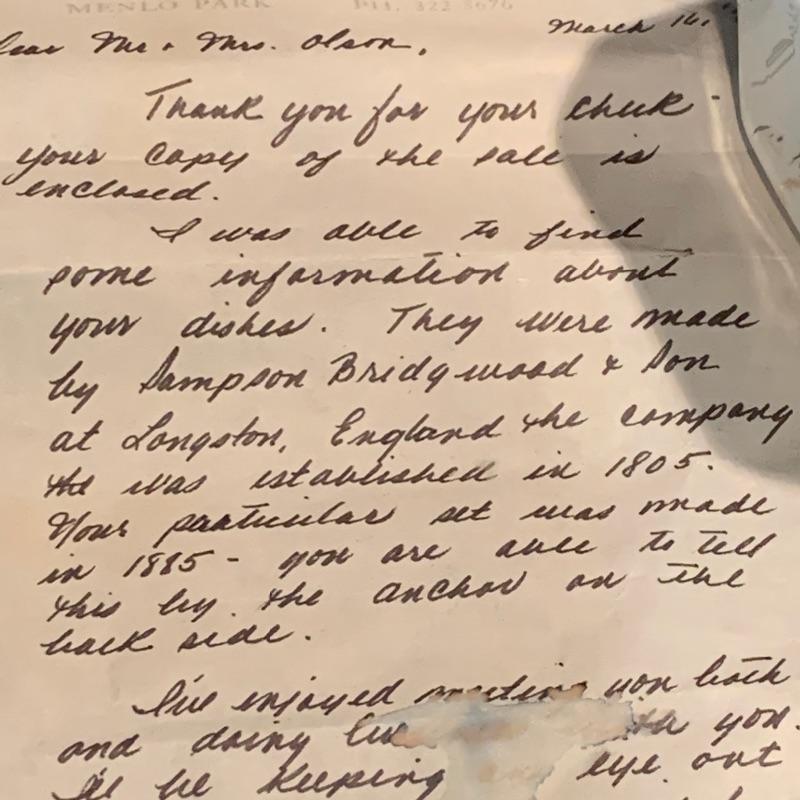 MENLO PARK PH. 322-3676
March 16,
Dear Mr. & Mrs. Olson,
Thank you for your check -
your copy of the sale is
enclosed.
I was able to find
some information about
your dishes. They were made
by Sampson Bridgwood & Son
at Longston, England the company
the was established in 1805.
Your particular set was made
in 1885 - you are able to tell
this by the anchor on the
back side.
I've enjoyed meeting you both
and doing you.
I'll be keeping eye out